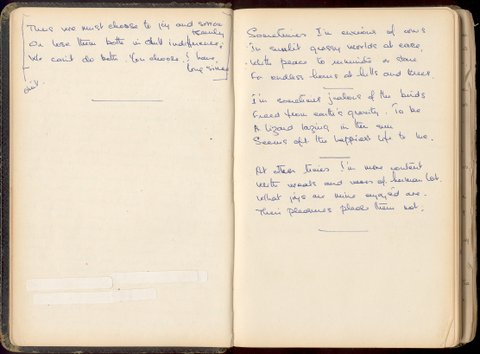 Thus we must choose to joy and sorrow
Or lose them both in dull indifference;
We can't do both. You choose. I have,
long since
Sometimes I'm envious of cows
In sunlit grassy worlds at ease,
With peace to ruminate or stare
For endless hours at hills and trees.
I'm sometimes jealous of the birds
Freed from earth's gravity. To be
A lizard lazing in the sun
Seems oft the happiest life to me.
At other times I'm more content
With weals and woes of human lot.
What joys are mine enjoyed are.
Their pleasures please them not.